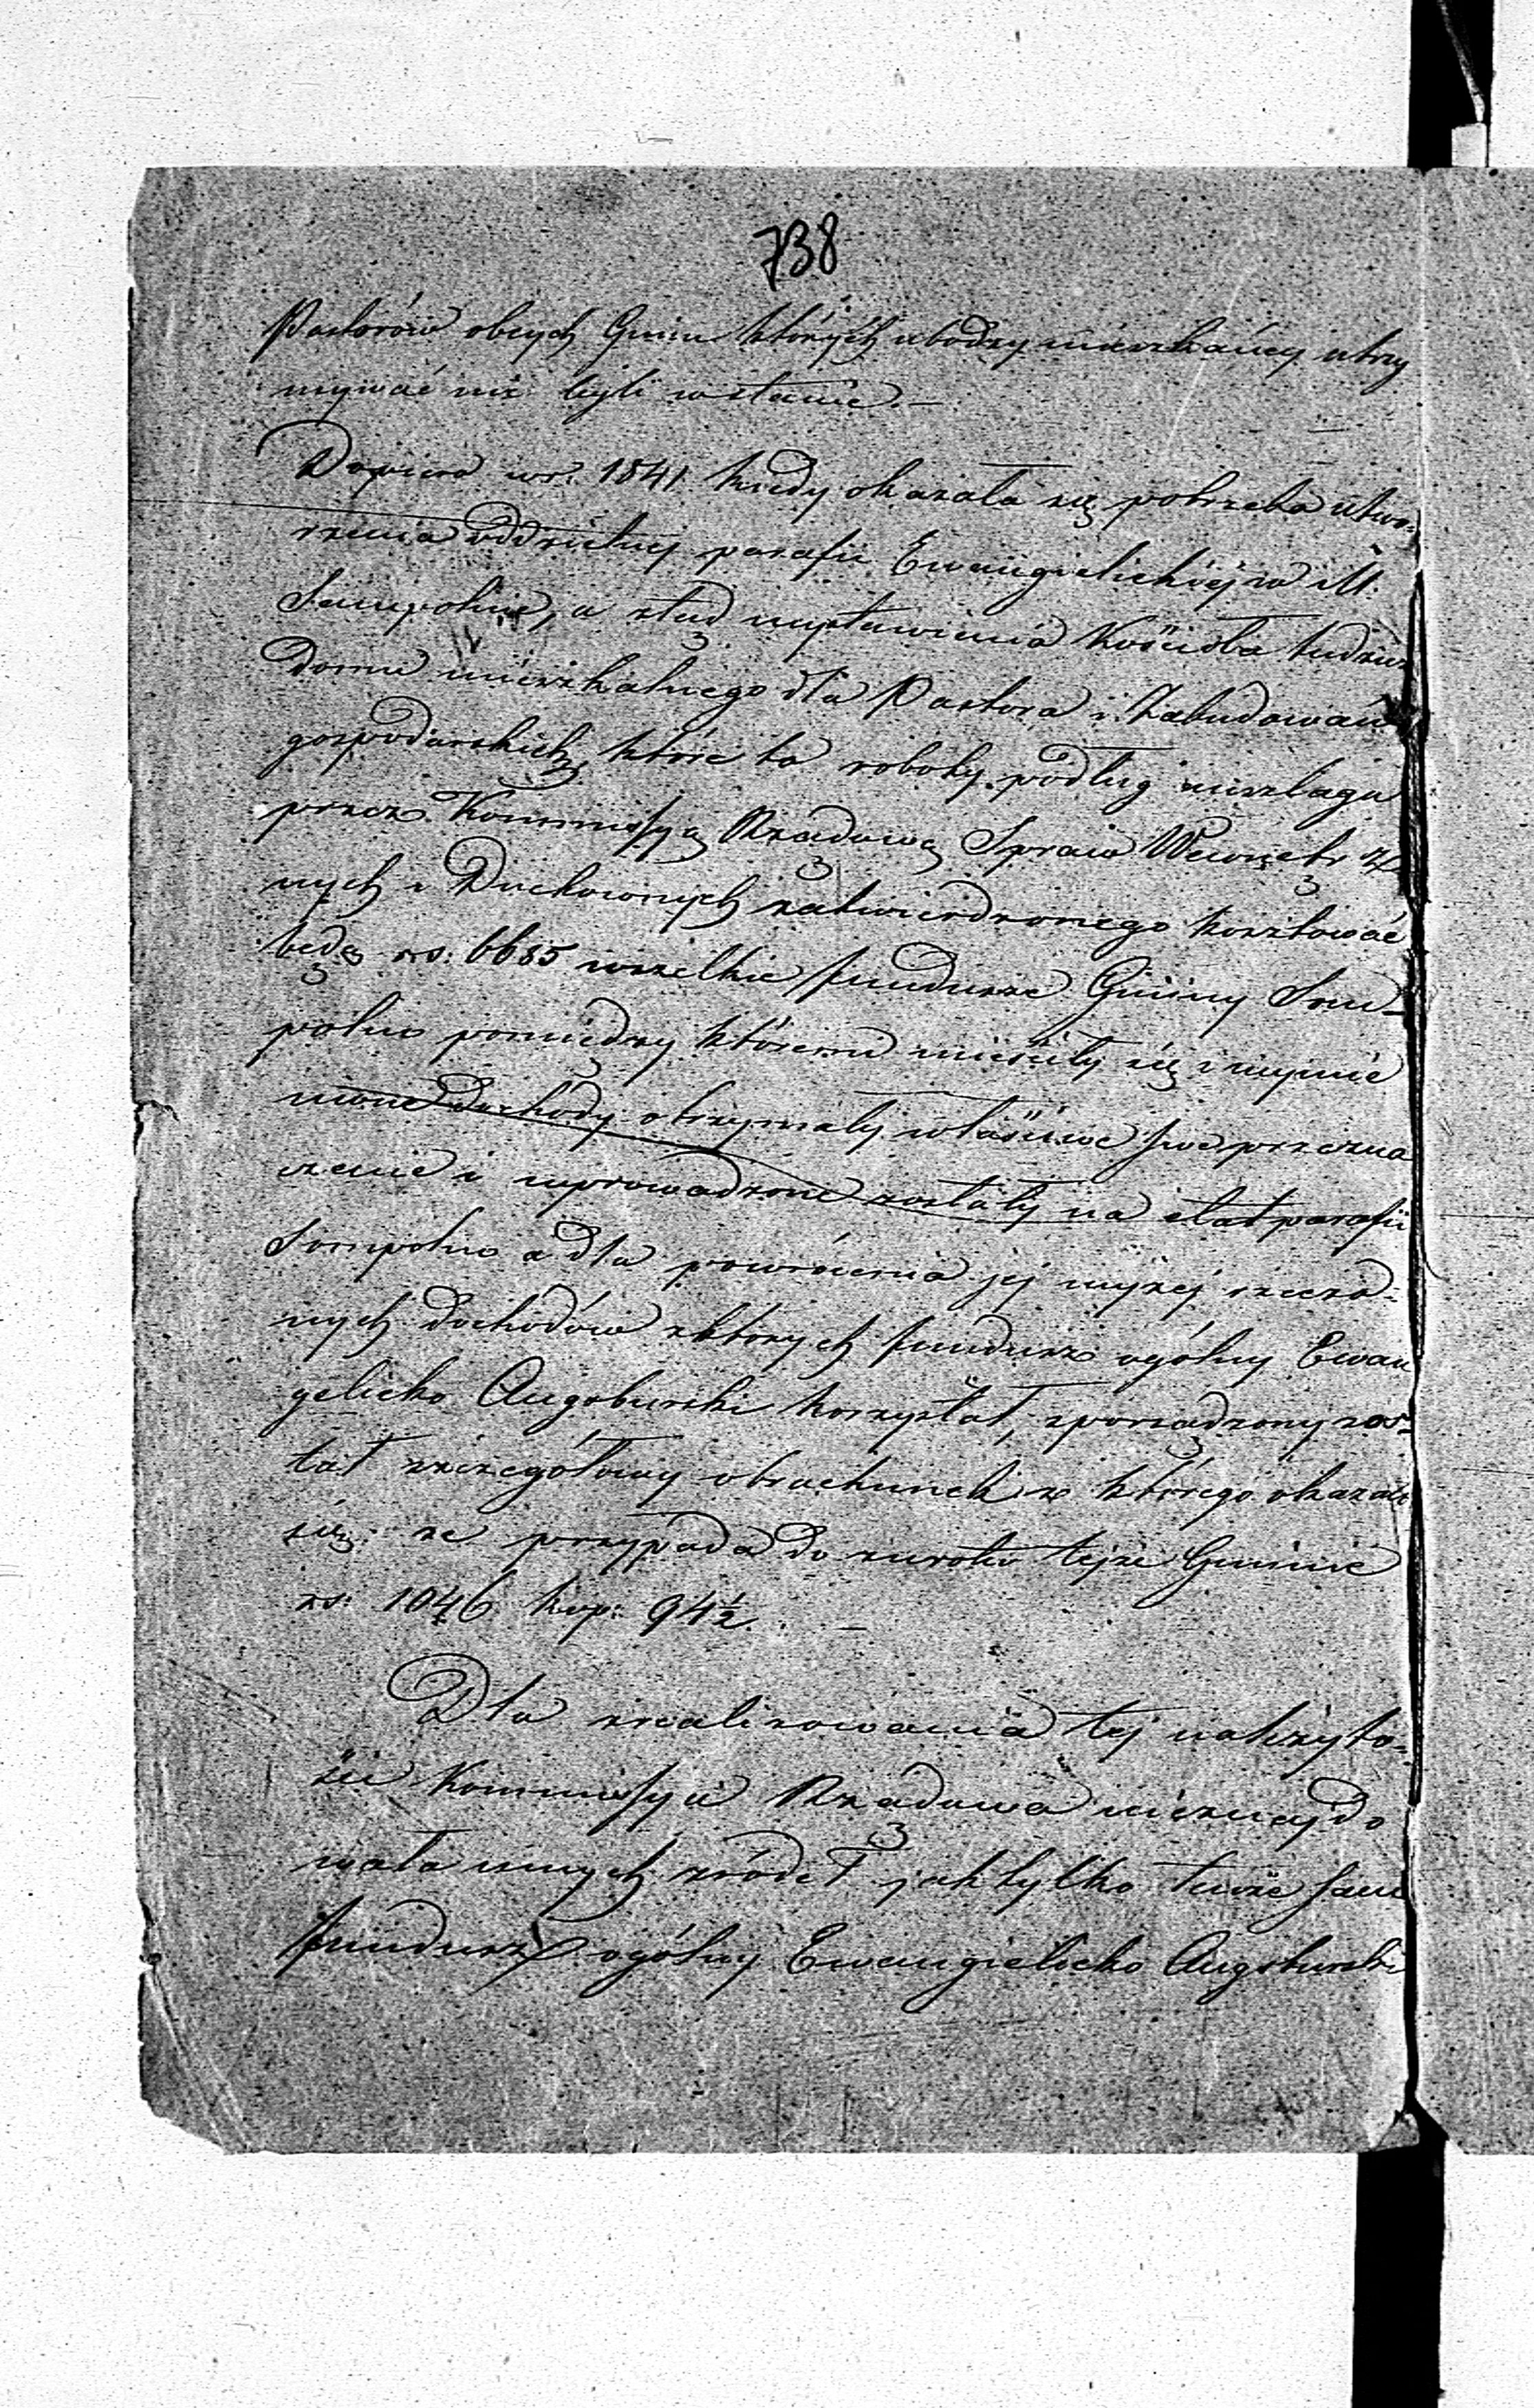 738
Pastorów obcych Gmin których ubodzy mieszkańcy utrzy
mywać nie byli wstanie. —
Dopiero w r. 1841 kiedy okazała się potrzeba utwo-
rzenia oddzielnej parafii Ewangielickiej w M.
Sempolnie, a ztąd wystawienia Kościoła tudzież
Domu mieszkalnego dla Pastora i Zabudowań
gospodarskich, które to roboty podług anszlagu
przez Kommissyą Rządową Spraw Wewnętrz
nych i Duchownych zatwierdzonego kosztować
będą rs: 6685 wszelkie fundusze Gminy Som-
polno pomiędzy któremi mieściły się i wymie
nione dochody otrzymały właściwe swe przezna
czenie i wprowadzone zostały na etat parafii
Sompolno a dla powrócenia jej wyżej rzeczo-
nych dochodów z których fundusz ogólny Ewan
gelicko Augsburski korzystał, sporządzony zos-
tał szczegółowy obrachunek z którego okazało
się: że przypada do zwrotu tejże Gminie
rs: 1046 kop: 94½. —
Dla zrealizowania tej należyto-
ści Kommissya Rządowa nieznajdo
wała innych źródeł jak tylko tenże sam
fundusz ogólny Ewangielicko Augsburski